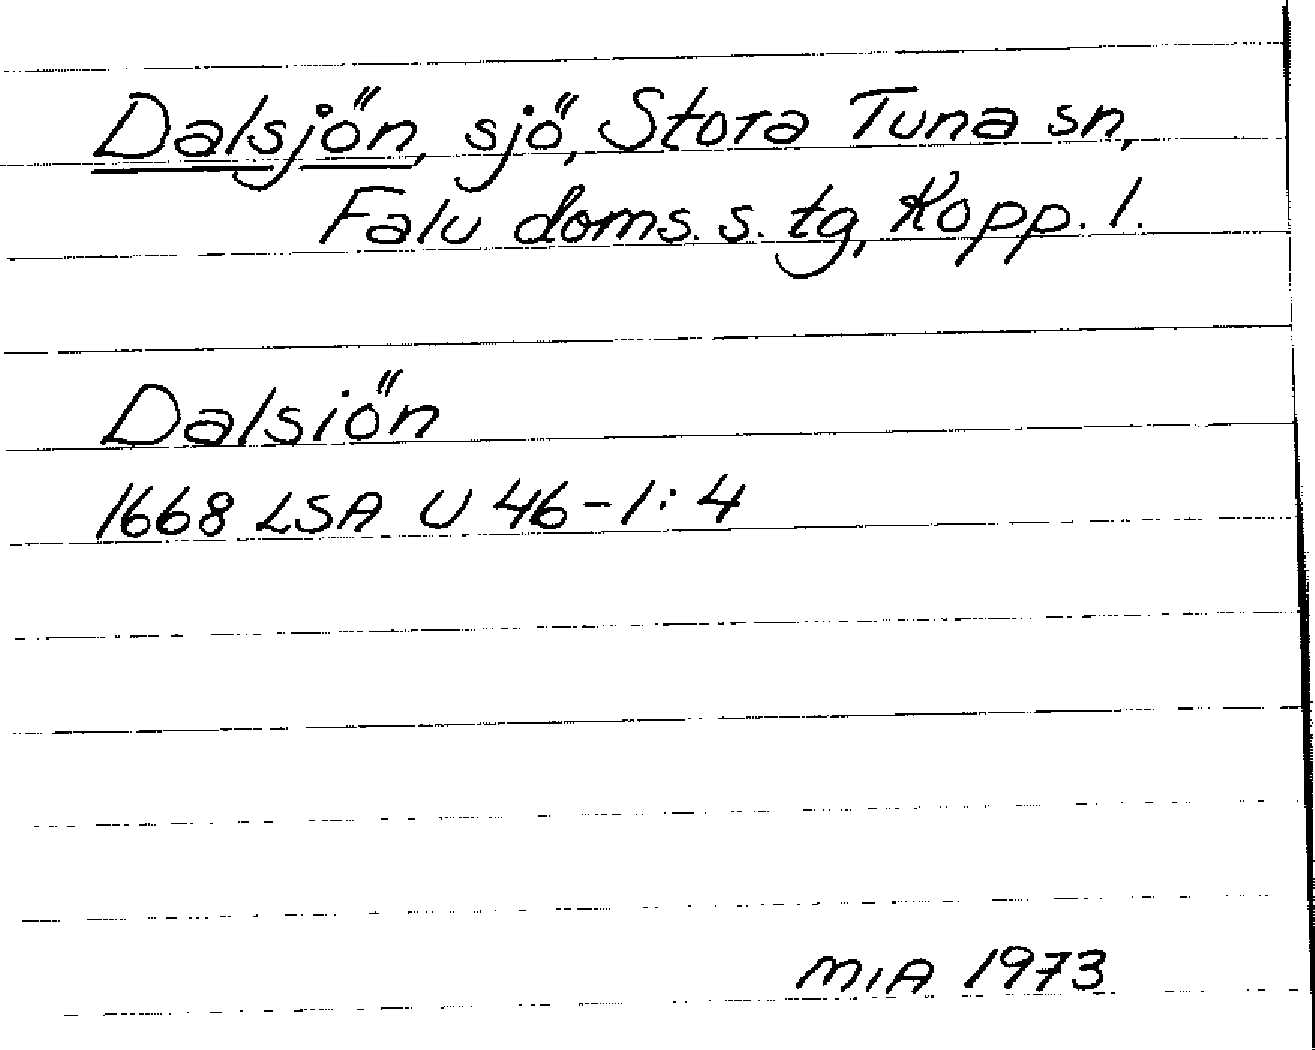 Dalsjön, sjö, Stora Tuna sn,
Falu doms. s. tg, Kopp. l.
Dalsiön
1668 LSA U 46-1:4
MIA 1973